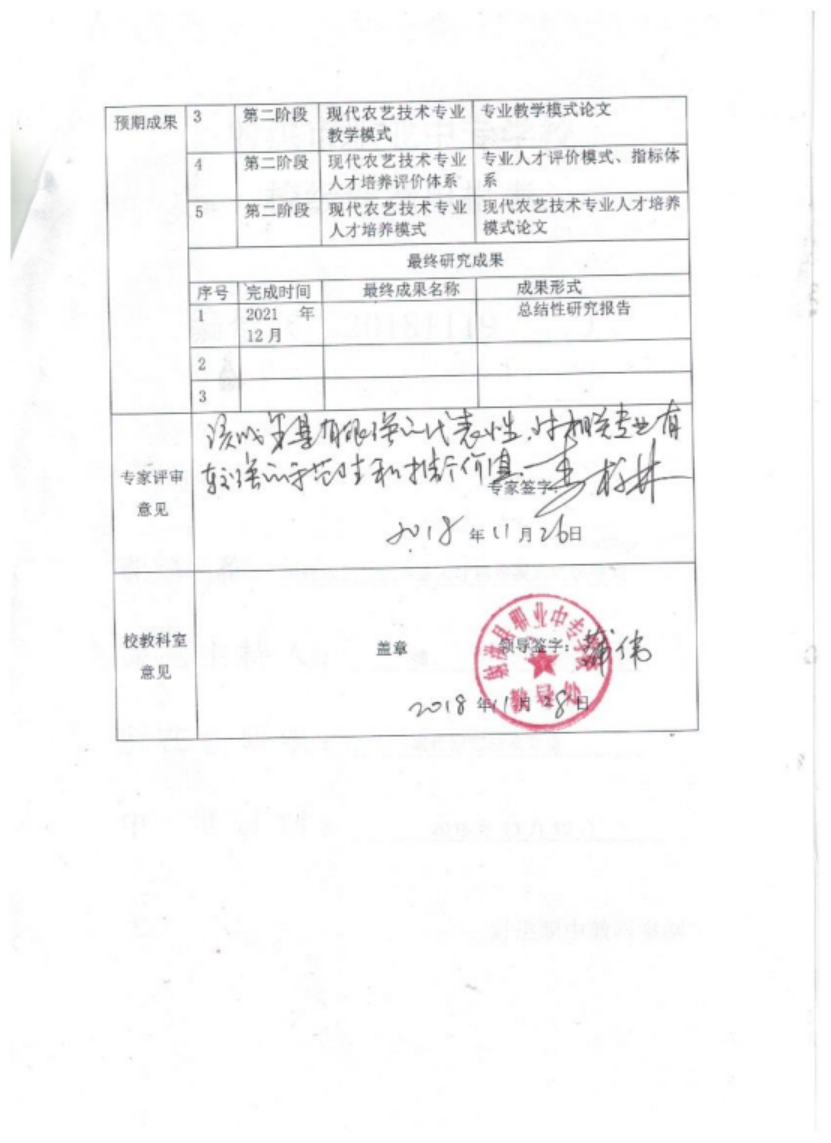 预期成果 3 第二阶段 现代农艺技术专业教学模式 专业教学模式论文
4 第二阶段 现代农艺技术专业人才培养评价体系 专业人才评价模式、指标体系
5 第二阶段 现代农艺技术专业人才培养模式 现代农艺技术专业人才培养模式论文
最终研究成果
序号 完成时间 最终成果名称 成果形式
1 2021 年 12 月 总结性研究报告
2
3
专家评审意见
该成果具有很强的代表性,对相关专业有
较强的示范性和推广价值.
专家签字:
2018 年 11 月 26 日
校教科室意见
盖章 领导签字:
县职业中专
2018 年 11 月 28 日